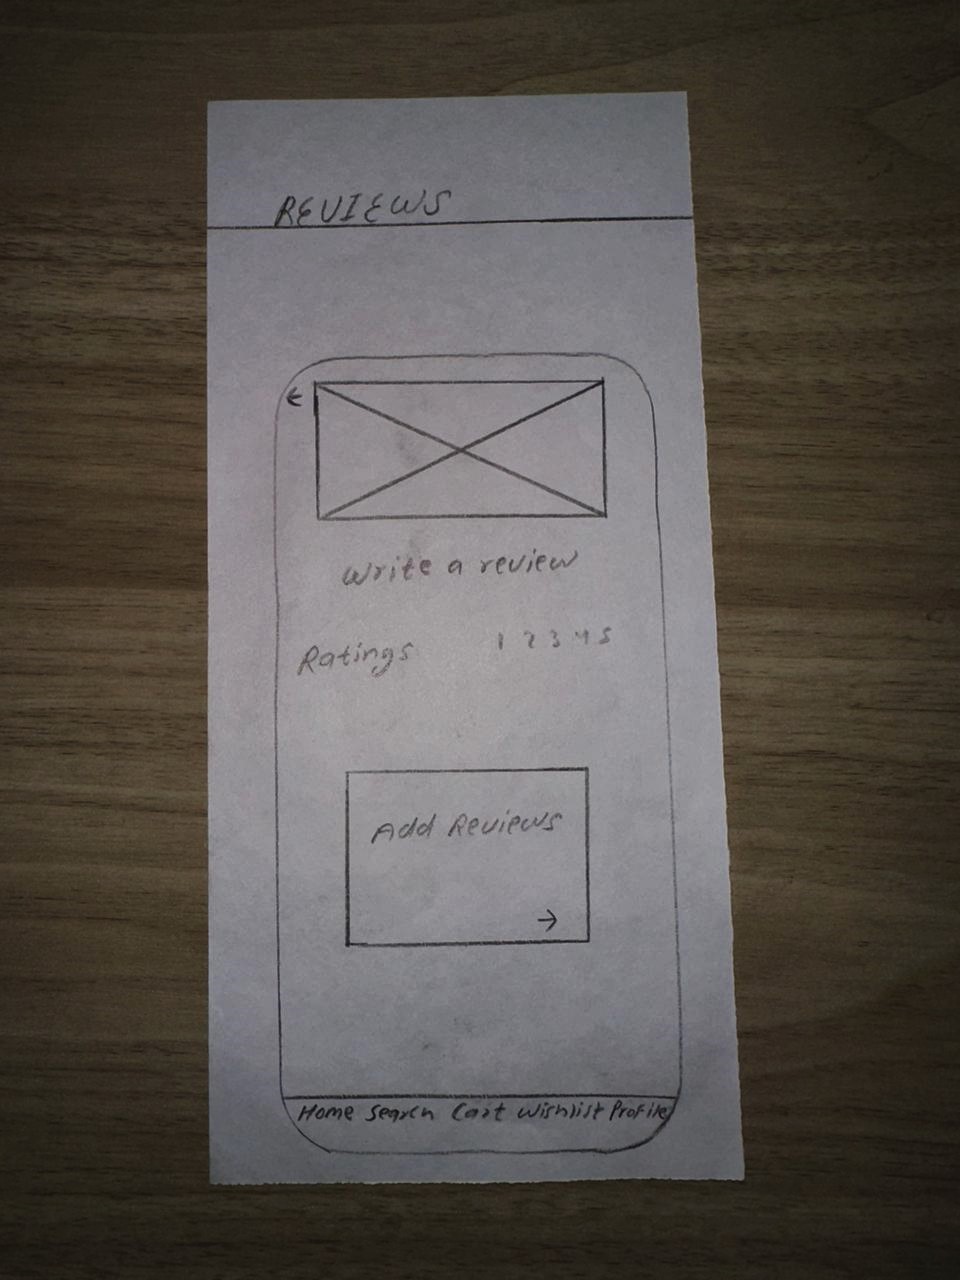 REVIEWS
←
Write a review
Ratings 1 2 3 4 5
Add Reviews
→
Home Search Cart Wishlist Profile